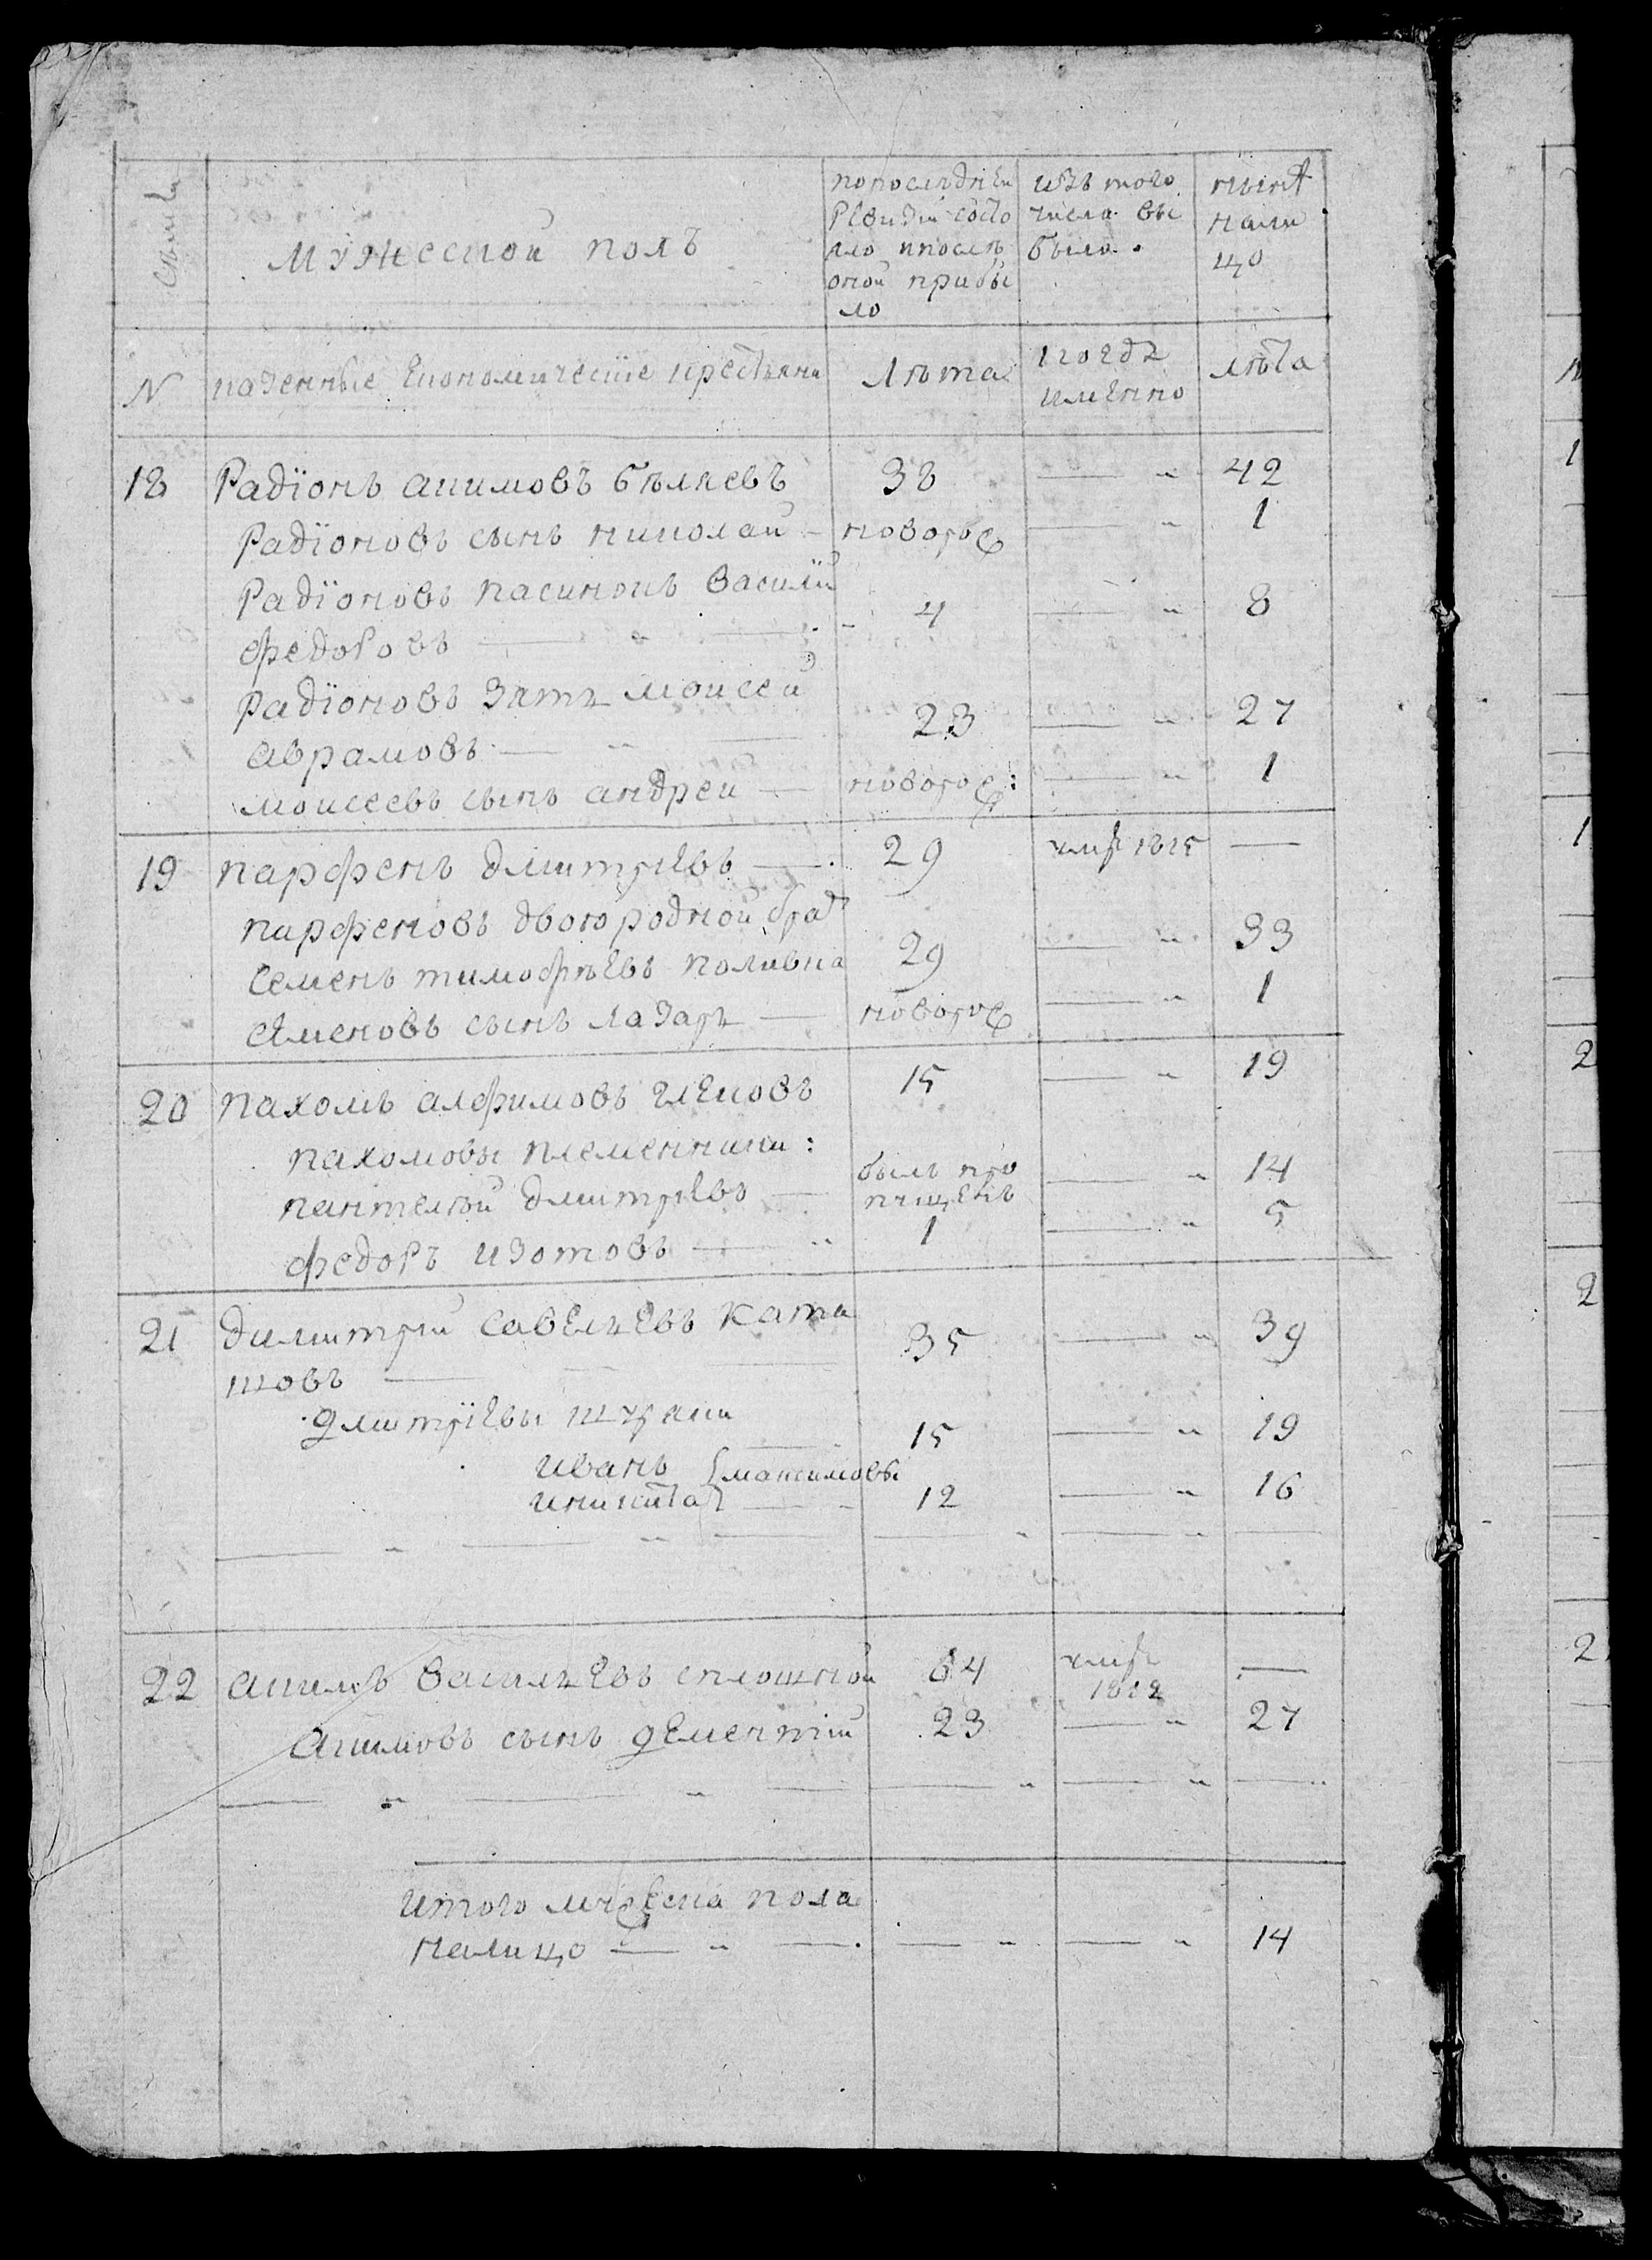 Семьи
Мужеской полъ
попоследней
Ревизіи состо
яло ипосле
оной прибы
ло
изъ того
числа вы
было.
ныне
нали
цо
N
казенные Економическіе крестьяна
Лѣта
когда
имянно
лѣта
18 Радїонъ акимовъ бѣляевъ 38 — „ 42
Радїоновъ сынъ николаи — новорож — „ 1
Радїоновъ пасинокъ василїи
федоровъ — „ — 4 — „ 8
Радїоновъ зять моисеи
аврамовъ — „ — 23 — „ 27
моисеевъ сынъ андреи — новорож: — „ 1
19 парфенъ дмитріевъ — 29 умре 1815 —
парфеновъ двоюродной брат
семенъ тимофѣевъ поливка 29 — „ 33
семеновъ сынъ лазарь — новорож — „ 1
20 пахомъ алфимовъ глековъ 15 — „ 19
пахомовы племенники:
пантелѣй дмитріевъ — былъ про
пущенъ — „ 14
федоръ изотовъ — „ 1 — „ 5
21 димитріи савельевъ Ката
шовъ — 35 — „ 39
дмитрїевы шураки
иванъ 15 — „ 19
максимовы
иникита — 12 — „ 16
— „ — „ — — „ — „ —
22 акимъ васильевъ сплошной 64 умре
1812 —
акимовъ сынъ дементїй 23 — „ 27
— „ — „ — — „ — „ — „
итого мужеска пола
налицо — „ — . — „ — „ 14